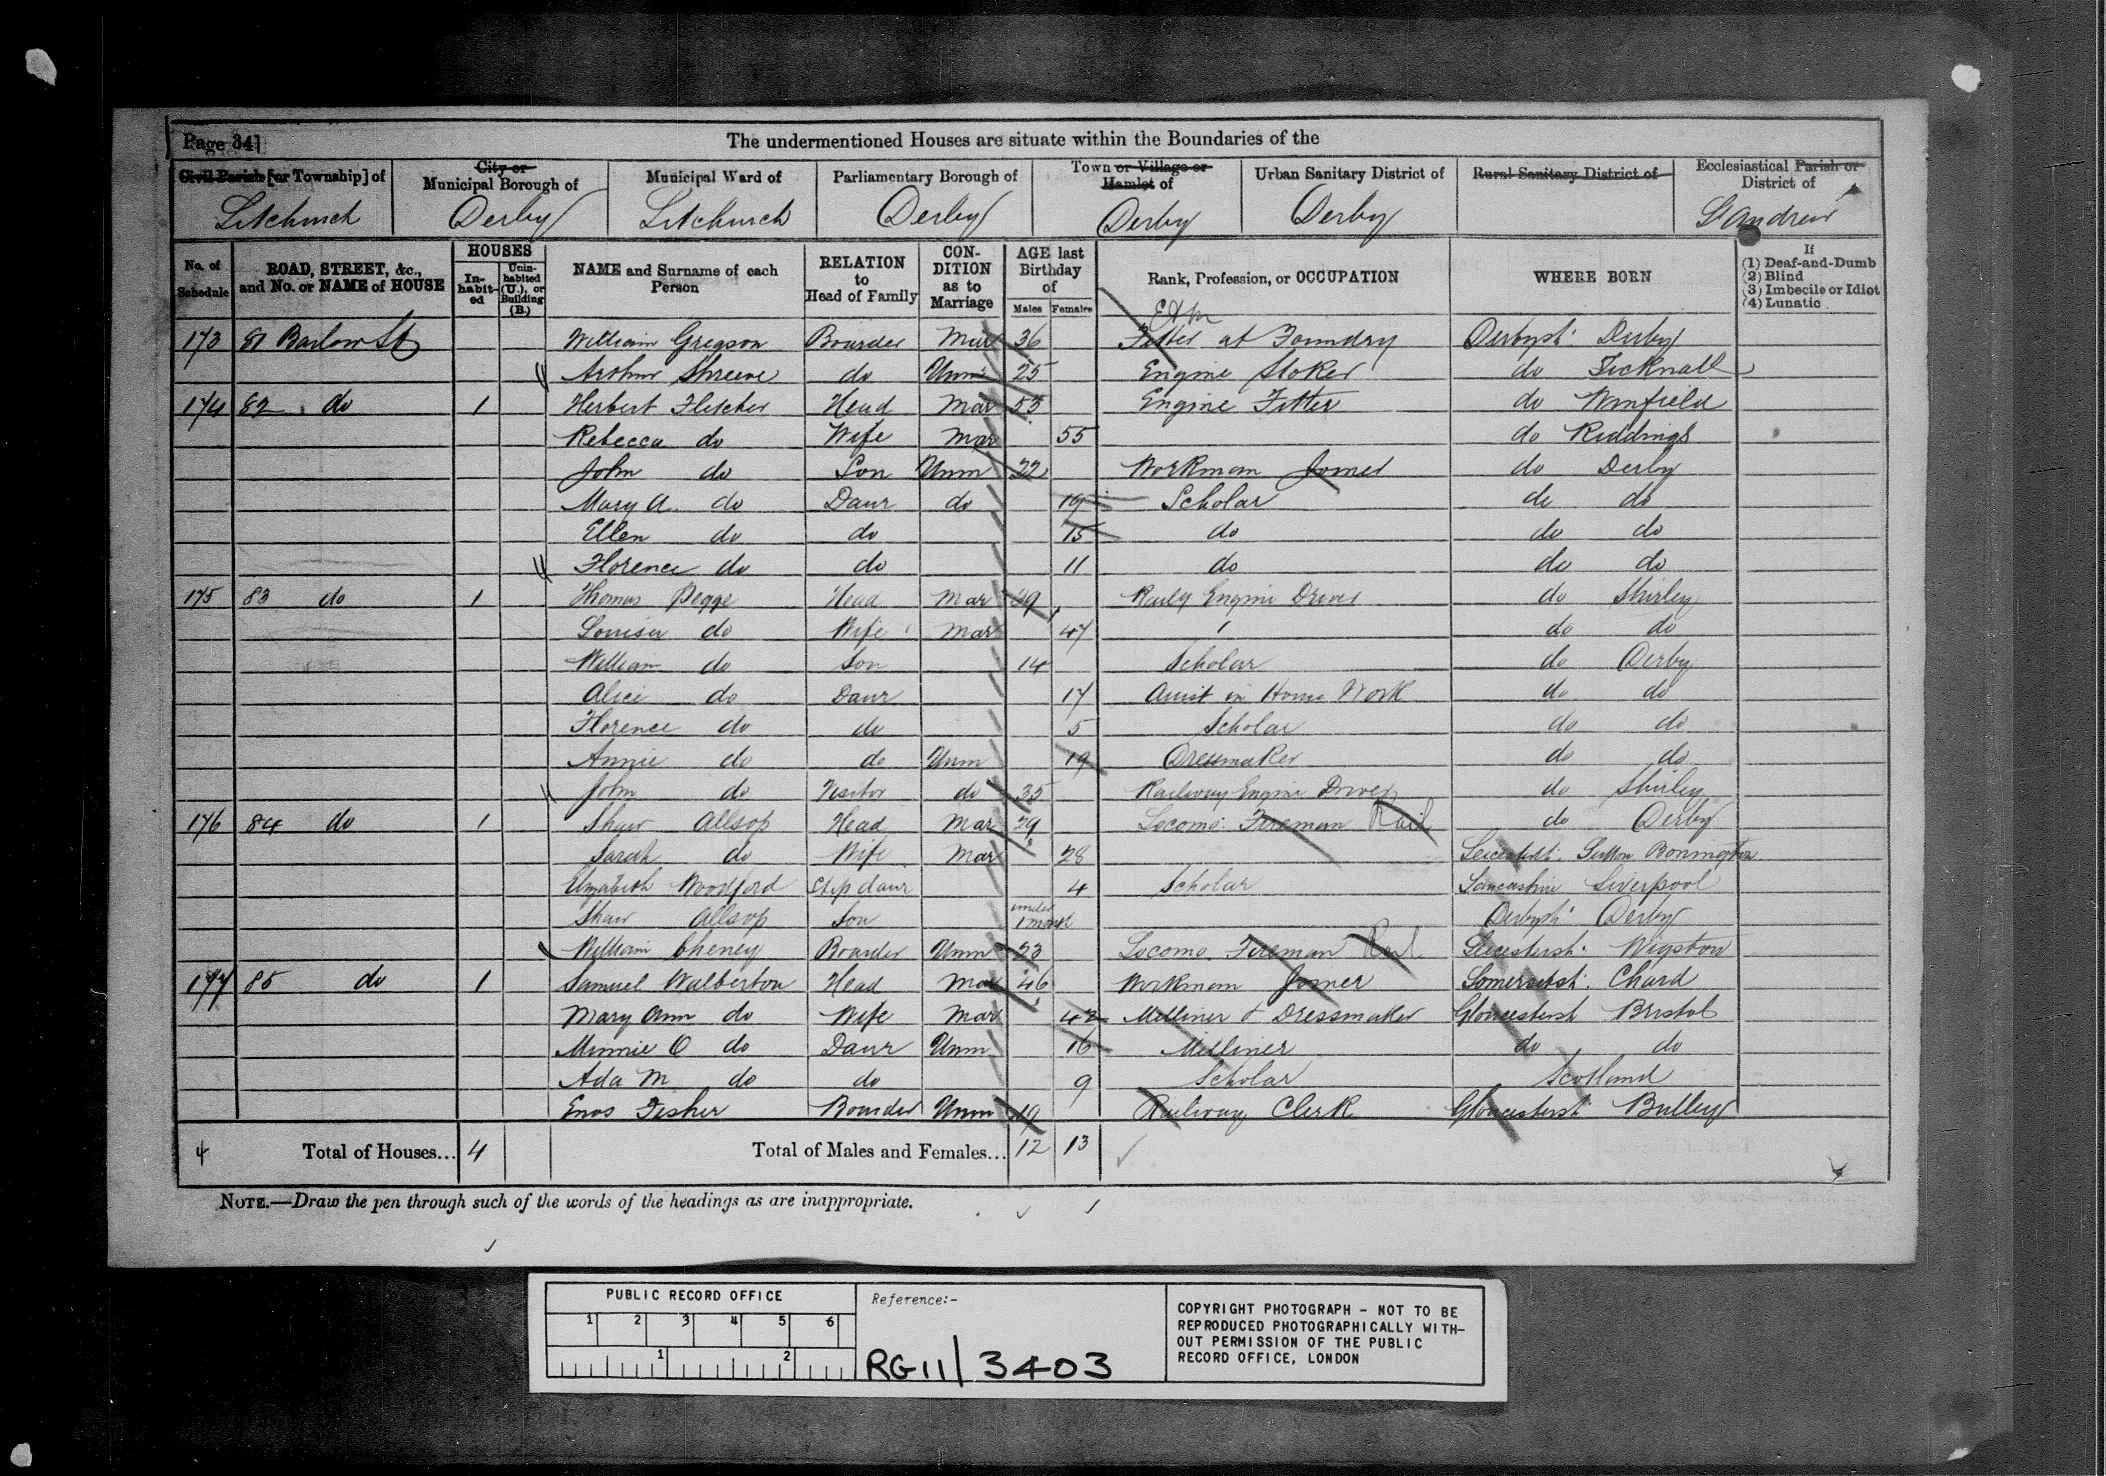 Page 34]
The undermentioned Houses are situate within the Boundaries of the
Civil Parish [or Township] of
City or Municipal Borough of
Municipal Ward of
Parliamentary Borough of
Town or Village or Hamlet of
Urban Sanitary District of
Rural Sanitary District of
Ecclesiastical Parish or District of
Litchurch Derby Litchurch Derby Derby Derby St Andrew
No. of Schedule
ROAD, STREET, &c., and No. or NAME of HOUSE
HOUSES
In-habit-ed
Unin-habited (U.), or Building (B.)
NAME and Surname of each Person
RELATION to Head of Family
CON-DITION as to Marriage
AGE last Birthday of
Males Females
Rank, Profession, or OCCUPATION
WHERE BORN
If
(1) Deaf-and-Dumb
(2) Blind
(3) Imbecile or Idiot
(4) Lunatic
173 81 Barlow St William Gregson Boarder Mar 36 Fitter at Foundry Derbysh: Derby
Arthur Shreeve do Unm 25 Engine Stoker do Ticknall
174 82 do 1 Herbert Fletcher Head Mar 53 Engine Fitter do Winfield
Rebecca do Wife Mar 55 do Riddings
John do Son Unm 22 Workman Joiner do Derby
Mary A. do Daur do 19 Scholar do do
Ellen do do 15 do do do
Florence do do 11 do do do
175 83 do 1 Thomas Pegge Head Mar 49 Raily Engine Driver do Shirley
Louisa do Wife Mar 47 do do
William do Son 14 Scholar do Derby
Alice do Daur 17 Assist in House Work do do
Florence do do 5 Scholar do do
Annie do do Unm 19 Dressmaker do do
John do Visitor do 35 Railway Engine Driver do Shirley
176 84 do 1 Shaw Allsop Head Mar 29 Locomo: Fireman Rail do Derby
Sarah do Wife Mar 28 Leicestersh: Sutton Bonnington
Elizabeth Woodford Step daur 4 Scholar Lancashire Liverpool
Shaw Allsop Son under 1 month Derbysh: Derby
William Cheney Boarder Unm 23 Locomo. Fireman Rail Leicestersh: Wigston
177 85 do 1 Samuel Walberton Head Mar 46 Workman Joiner Somersetsh: Chard
Mary Ann do Wife Mar 42 Milliner & Dressmaker Gloucestersh Bristol
Minnie O do Daur Unm 16 Milliner do do
Ada M do do 9 Scholar Scotland
Enos Fisher Boarder Unm 19 Railway Clerk Gloucestersh: Bulley
4 Total of Houses... 4 Total of Males and Females... 12 13
NOTE.—Draw the pen through such of the words of the headings as are inappropriate.
PUBLIC RECORD OFFICE
1 2 3 4 5 6
1 2
Reference:-
RG 11/3403
COPYRIGHT PHOTOGRAPH - NOT TO BE
REPRODUCED PHOTOGRAPHICALLY WITH-
OUT PERMISSION OF THE PUBLIC
RECORD OFFICE, LONDON